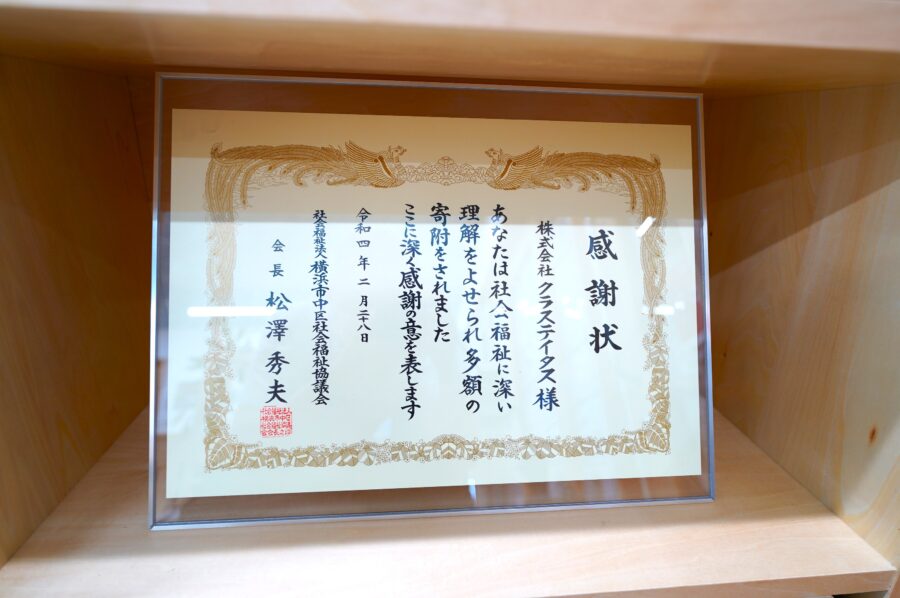 感謝状
株式会社 クラステイタス様
あなたは社会福祉に深い
理解をよせられ多額の
寄附をされました
ここに深く感謝の意を表します
令和四年二月二十八日
社会福祉法人 横浜市中区社会福祉協議会
会長 松澤秀夫